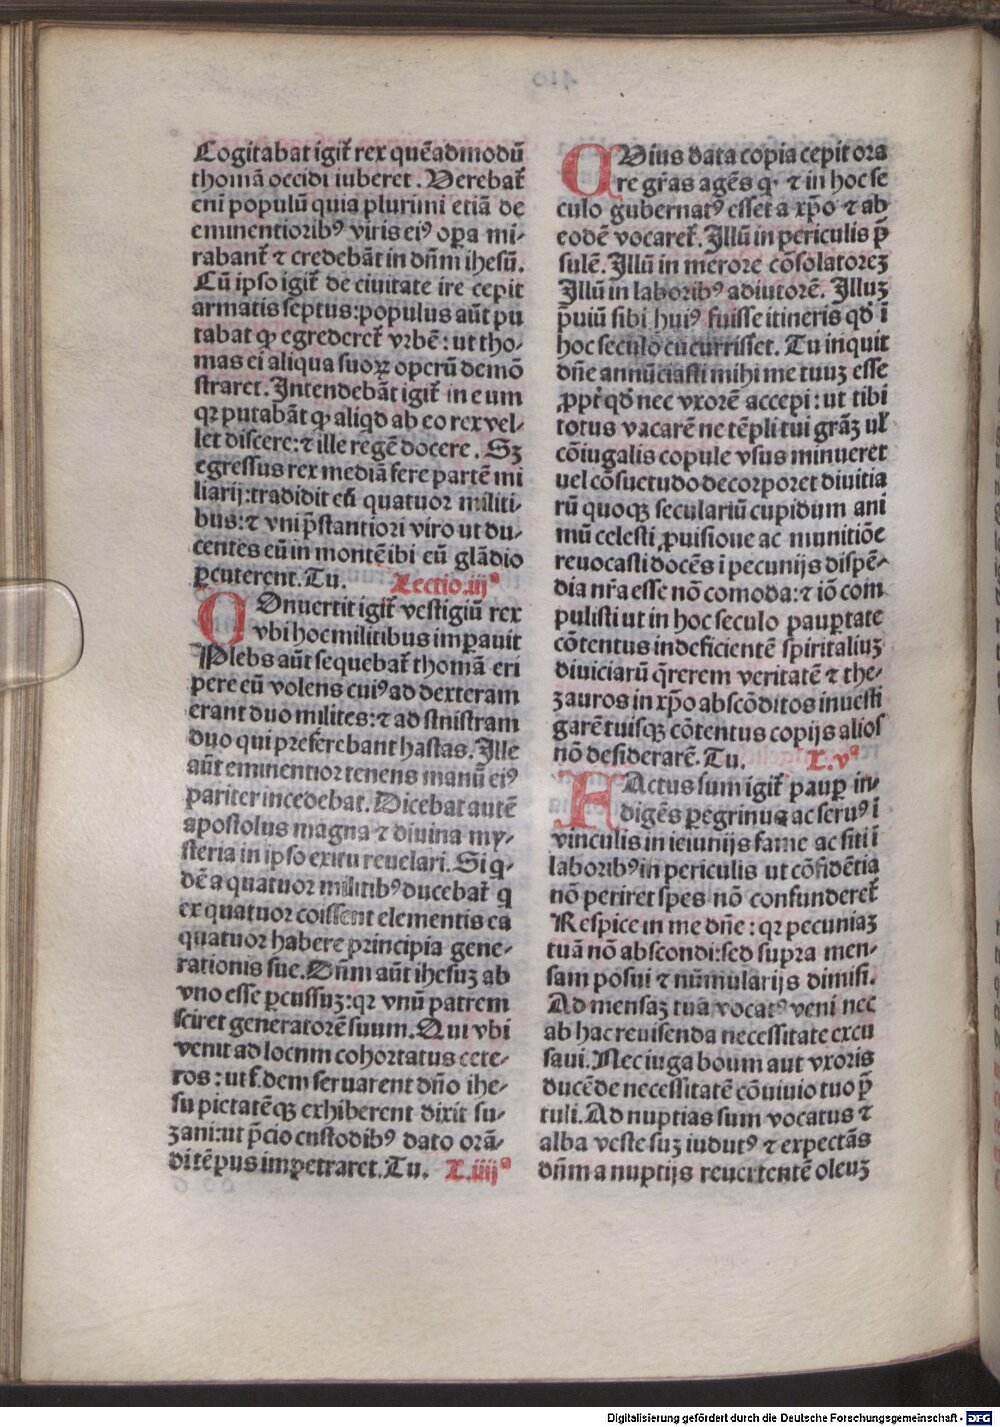 Cogitabat igit̃ rex quēadmodū
thomā occidi iuberet. Verebat̃
eni populū quia plurimi etiā de
eminentiorib⁹ viris ei⁹ oꝑa mi-
rabant̃ ⁊ credebāt in dn̄m ihesū.
Cū ipso igit̃ de ciuitate ire cepit
armatis septus: populus aūt pu
tabat ꝙ egrederet̃ vrbē: ut tho-
mas ei aliqua suoꝝ operū demō
straret. Intendebāt igit̃ in eum
qꝛ putabāt ꝙ aliqd ab eo rex vel-
let discere: ⁊ ille regē docere. Sꝫ
egressus rex mediā fere partē mi
liarij: tradidit eū quatuor militi-
bus: ⁊ vni p̄stantiori viro ut du-
centes eū in montē ibi eū glādio
ꝑcuterent. Tu. Lectio.iijᵃ
COnuertit igit̃ vestigiū rex
vbi hoc militibus imperauit
Plebs aūt sequebat̃ thomā eri
pere eū volens cui⁹ ad dexteram
erant duo milites: ⁊ ad sinistram
duo qui preferebant hastas. Ille
aūt eminentior tenens manū ei⁹
pariter incedebat. Dicebat autē
apostolus magna ⁊ diuina my-
steria in ipso exitu reuelari. Si q-
dē a quatuor militib⁹ ducebat̃ q
ex quatuor coissent elementis ea
quatuor habere principia gene-
rationis sue. Dn̄m aūt ihesuꝫ ab
vno esse ꝑcussuꝫ: qꝛ vnū patrem
sciret generatorē suum. Qui vbi
venit ad locnm cohortatus cete-
ros: ut f̄. dem seruarent dn̄o ihe-
su pietatēqꝫ exhiberent dixit su-
zani: ut p̄cio custodib⁹ dato orā-
di tēpus impetraret. Tu. L.iiijᵃ
QVius data copia cepit ora
re gr̄as agēs q. ⁊ in hoc se
culo gubernat⁹ esset a xp̄o ⁊ ab
eodē vocaret̃. Illū in periculis p̄
sulē. Illū in merore cōsolatoreꝫ
Illū in laborib⁹ adiutorē. Illuꝫ
p̄uiū sibi hui⁹ fuisse itineris qđ ī
hoc seculo cucurrisset. Tu inquit
dn̄e annūciasti mihi me tuuꝫ esse
ꝓpt̃ qđ nec vxorē accepi: ut tibi
totus vacarē ne tēpli tui grāꝫ ul̃
cōiugalis copule vsus minueret
uel cōsuetudo decorporet diuitia
rū quoqꝫ seculariū cupidum ani
mū celesti ꝓuisione ac munitiōe
reuocasti docēs ī pecunijs dispē-
dia nr̄a esse nō comoda: ⁊ iō com
pulisti ut in hoc seculo pauꝑtate
cōtentus indeficientē spiritaliuꝫ
diuiciarū q̄rerem veritatē ⁊ the-
zauros in xp̄o abscōditos inuesti
garē tuisqꝫ cōtentus copijs alios
nō desiderarē. Tu. L.vᵃ
FActus sum igit̃ pauꝑ in-
digēs ꝑegrinus ac seru⁹ ī
vinculis in ieiunijs fame ac siti ī
laborib⁹ in periculis ut cōfidētia
nō periret spes nō confunderet̃
Respice in me dn̄e: qꝛ pecuniaꝫ
tuā nō abscondi: sed supra men-
sam posui ⁊ nūmularijs dimisi.
Ad mensaꝫ tuā vocat⁹ veni nec
ab hac reuisenda necessitate excu
saui. Nec iuga boum aut vxoris
ducēde necessitatē cōuiuio tuo p̄
tuli. Ad nuptias sum vocatus ⁊
alba veste suꝫ indut⁹ ⁊ expectās
dn̄m a nuptijs reuertentē oleuꝫ
Digitalisierung gefördert durch die Deutsche Forschungsgemeinschaft - DFG